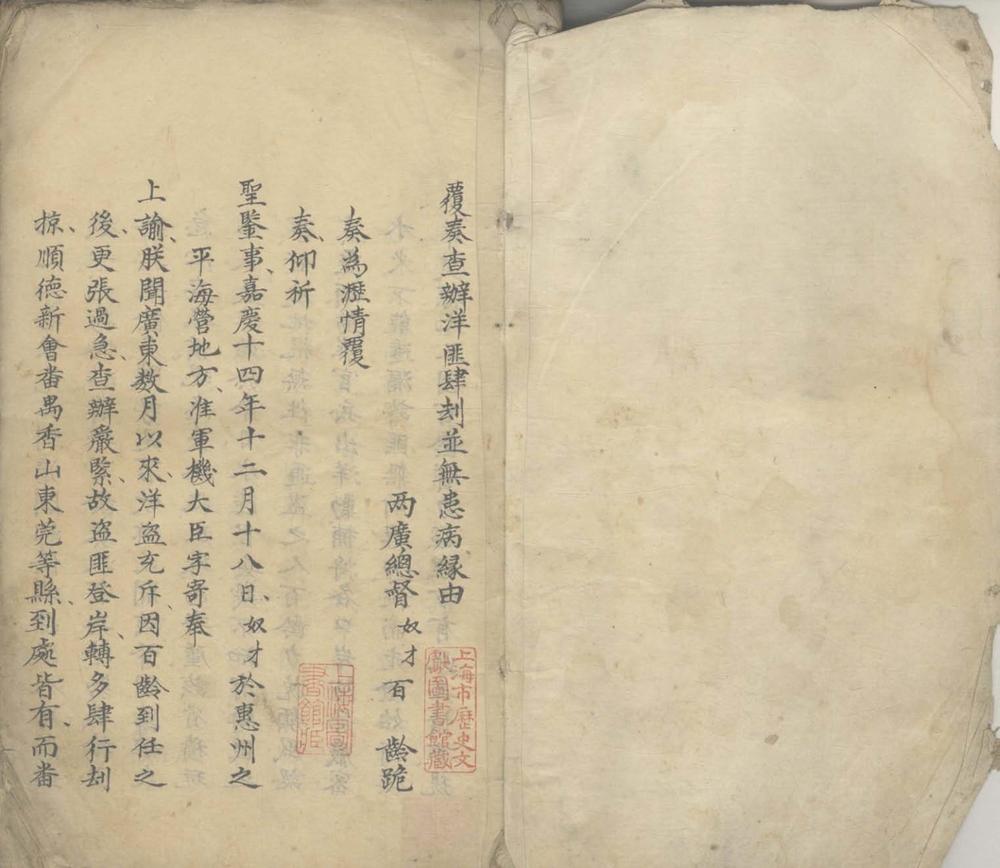 覆奏查辦洋匪肆刦並無患病緣由
兩廣總督奴才百齡跪
奏為瀝情覆
奏仰祈
聖鑒事嘉慶十四年十二月十八日奴才於惠州之
平海營地方准軍機大臣字寄奉
上諭朕聞廣東數月以來洋盜充斥因百齡到任之
後更張過急查辦嚴緊故盜匪登岸轉多肆行刦
掠順德新會番禺香山東莞等縣到處皆有而番
上海市歷史文
獻圖書館藏